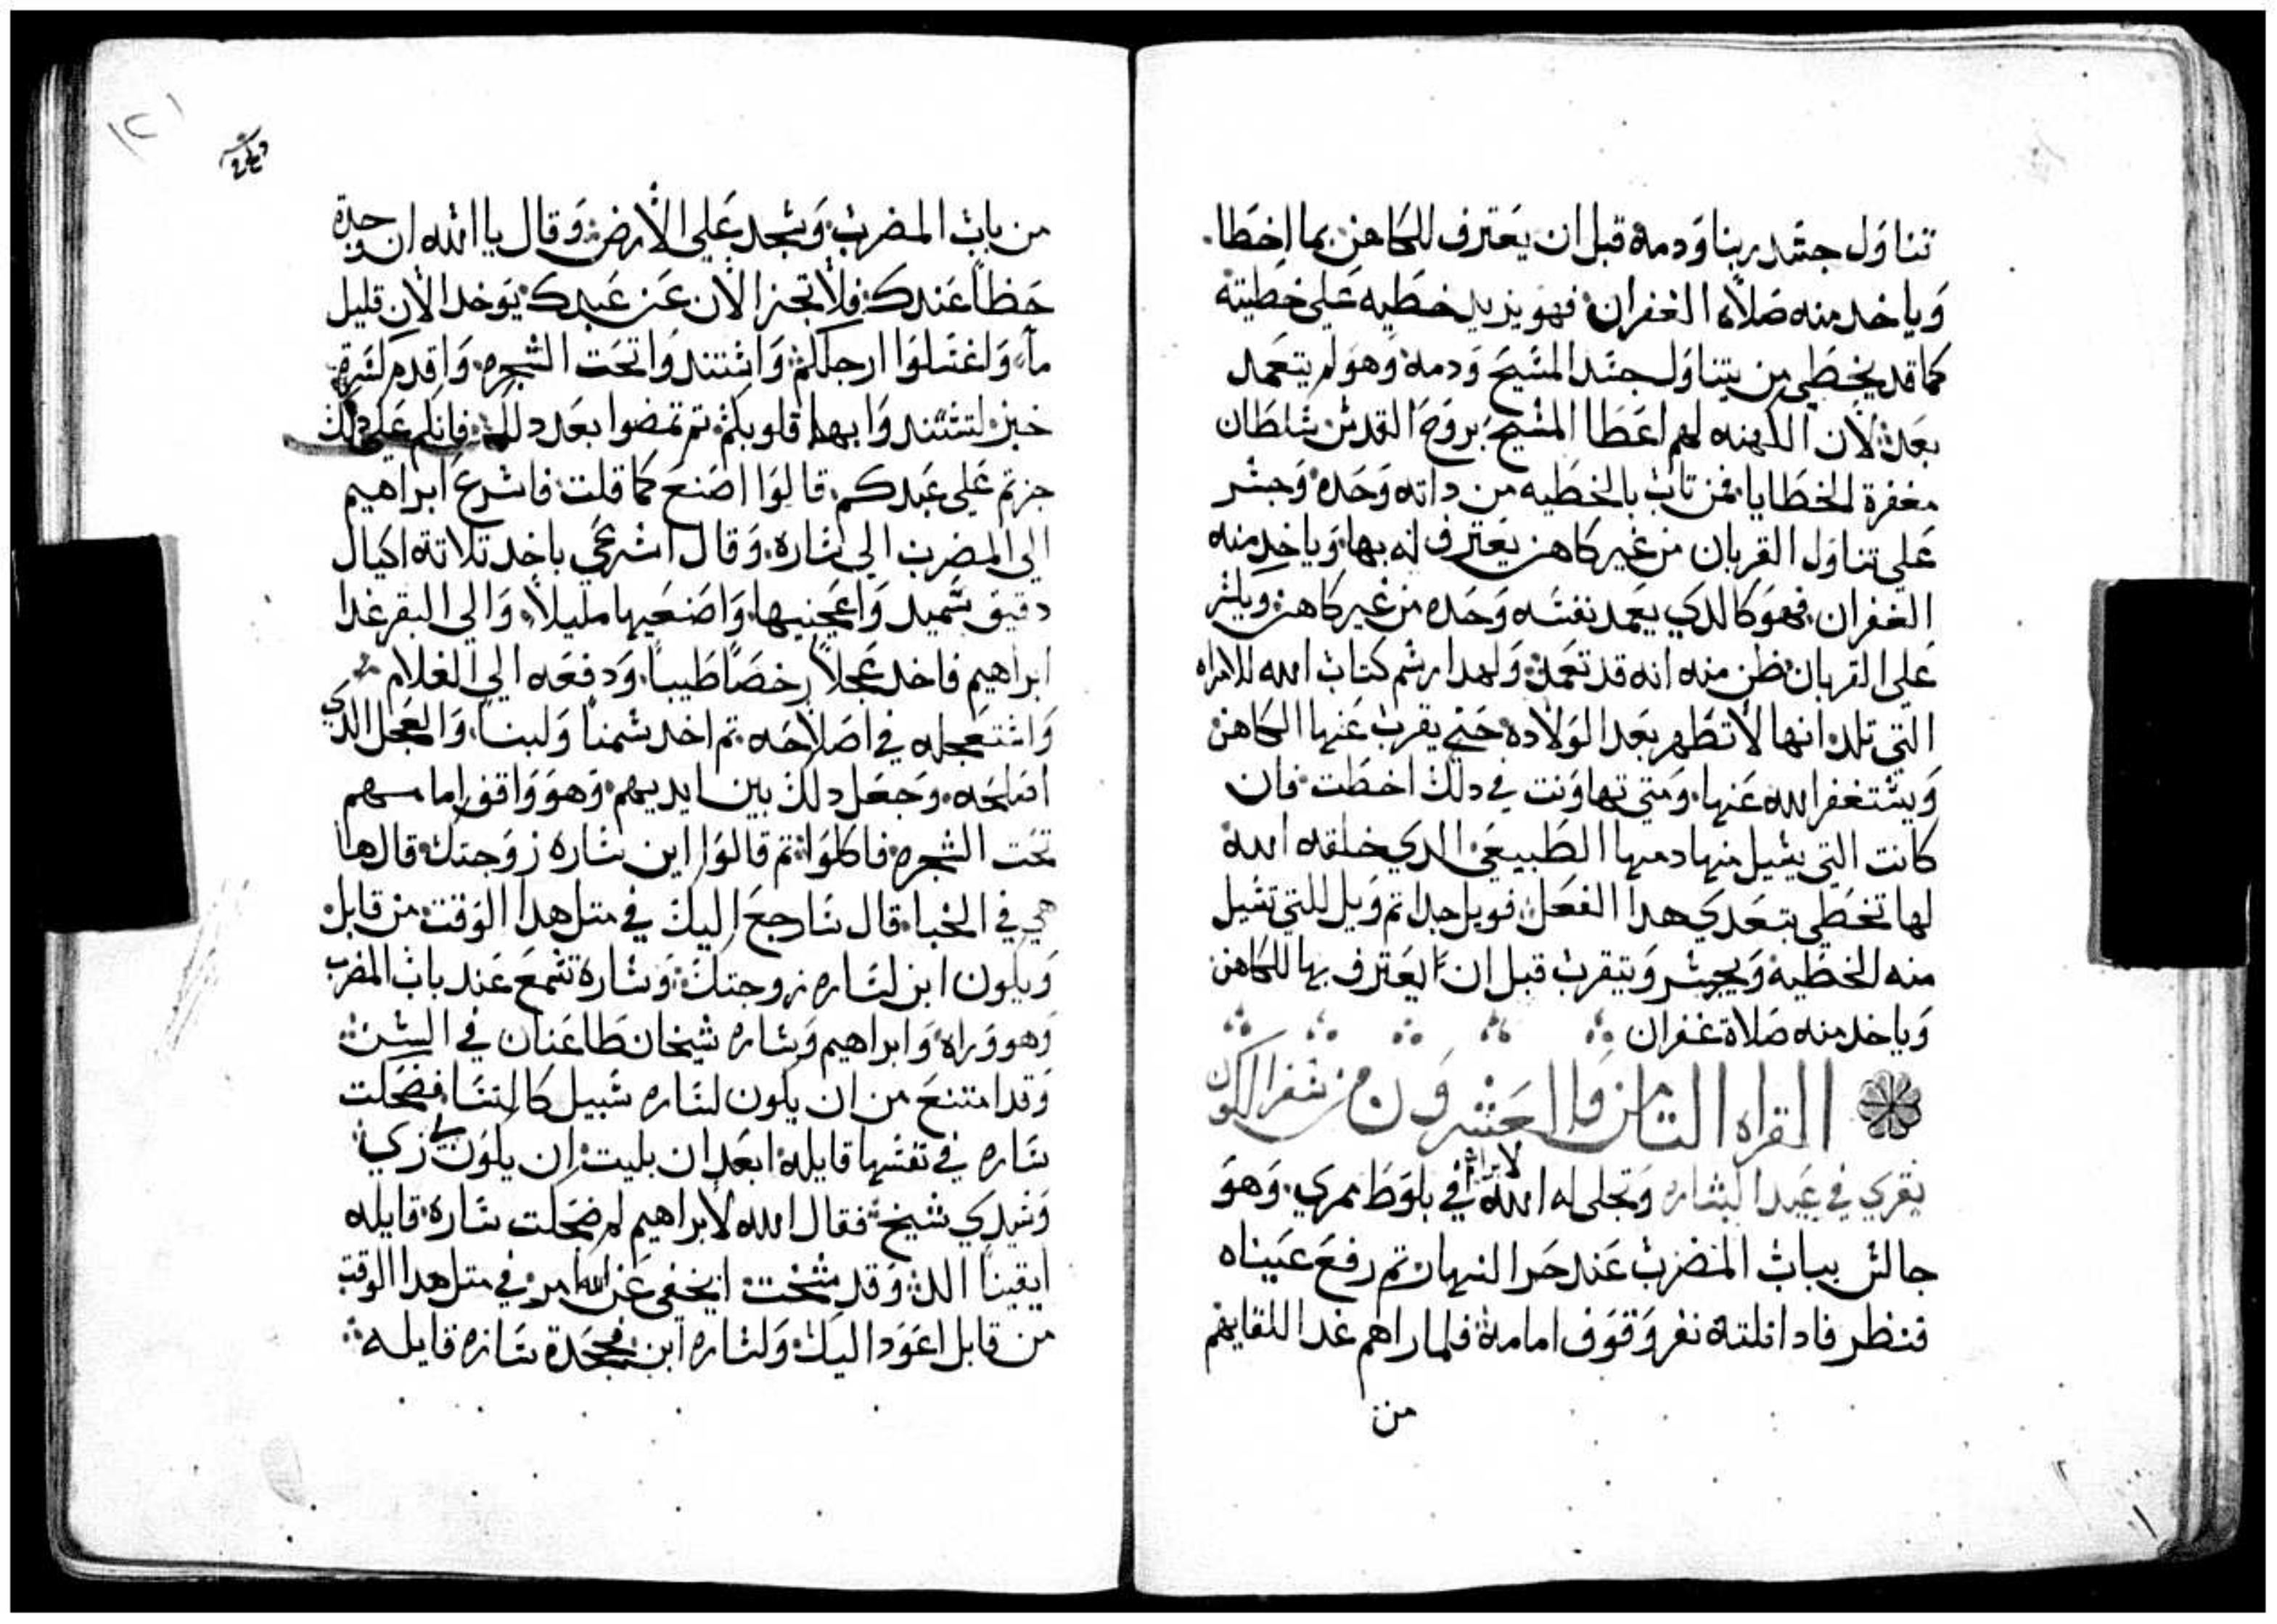 تناول جسد ربنا ودمه قبل ان يعترف للكاهن بما اخطا.
وياخد منه صلاة الغفران فهو يزيد خطيه على خطيته
كما قد يخطي من يتناول جسد المسيح ودمه وهو لم يتعمد
بعد لان الكهنه لهم اعطا المسيح بروح القدس سلطان
مغفرة الخطايا فمن تاب بالخطيه من داته وحده وجسر
علي تناول القربان من غير كاهن يعترف له بها وياخد منه
الغفران فهو كالدي يعمد نفسه وحده من غير كاهن ويجسر
على القربان ظن منه انه قد تعمد ولهدا رسم كتاب الله للامراه
التي تلد انها لا تطهر بعد الولاده حتي يقرب عنها الكاهن
ويستغفر الله عنها ومتي تهاونت في دلك اخطت فان
كانت التي يسيل منها دمها الطبيعي الدي خلقه الله
لها تخطي بتعدي هدا الفعل فويل جدا تم ويل للتي تسيل
منه الخطيه ويجسر ويتقرب قبل ان يعترف بها للكاهن
وياخد منه صلاة غفران
القراه التامن والعشرون من سفر الكون
يقري في عيد البشاره وتجلي له الله لابراهيم في بلوط ممري وهو
جالس بباب المضرب عند حر النهار تم رفع عيناه
فنظر فادا تلتة نفر وقوف امامه فلما راهم غدا للقايهم
من
١٢١
من باب المضرب وسجد علي الارض وقال يا الله ان وجدة
حظا عندك فلا تجز الان عن عبدك يوخد الان قليل
ماء واغسلوا ارجلكم واستندوا تحت الشجره واقدم كسرة
خبز لتستندوا بها قلوبكم تم تمضوا بعد دلك فانكم على دلك
جزتم علي عبدكم قالوا اصنع كما قلت فاسرع ابراهيم
الي المضرب الي ساره وقال اسرعي باخد تلاتة اكيال
دقيق سميد واعجنيها واصنعيها مليلا والي البقر غدا
ابراهيم فاخد عجلا رخصا طيبا ودفعه الي الغلام
واستعجله في اصلاحه تم اخد سمنا ولبنا والعجل الدي
اصلحه وجعل دلك بين ايديهم وهو واقف امامهم
تحت الشجره فاكلوا تم قالوا اين ساره زوجتك قال ها
هي في الخبا قال سارجع اليك في متل هدا الوقت من قابل
ويكون ابن لساره زوجتك وسارة تسمع عند باب المضرب
وهو وراه وابراهيم وساره شيخان طاعنان في السن
وقد امتنع من ان يكون لساره سبيل كالنسا فضحكت
ساره في نفسها قايله ابعد ان بليت ان يكون لي زكي
وسيدي شيخ فقال الله لابراهيم لم ضحكت ساره قايله
ايقينا الد وقد شخت ايخفي عن الله امر في متل هدا الوقت
من قابل اعود اليك ولساره ابن فجحدة ساره قايله